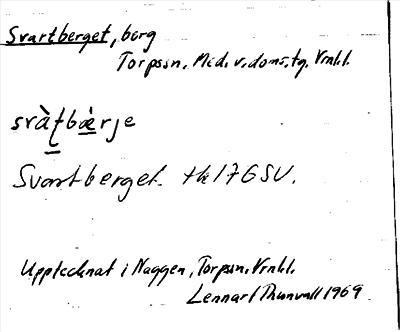 Svartberget, berg
Torpssn. Med. v. doms. tg. Vrnl.l.
svàʈbæ̀rje
Svartberget. tk 17GSV.
Upptecknat i Naggen, Torpsn. Vrnl.l.
Lennart 1969